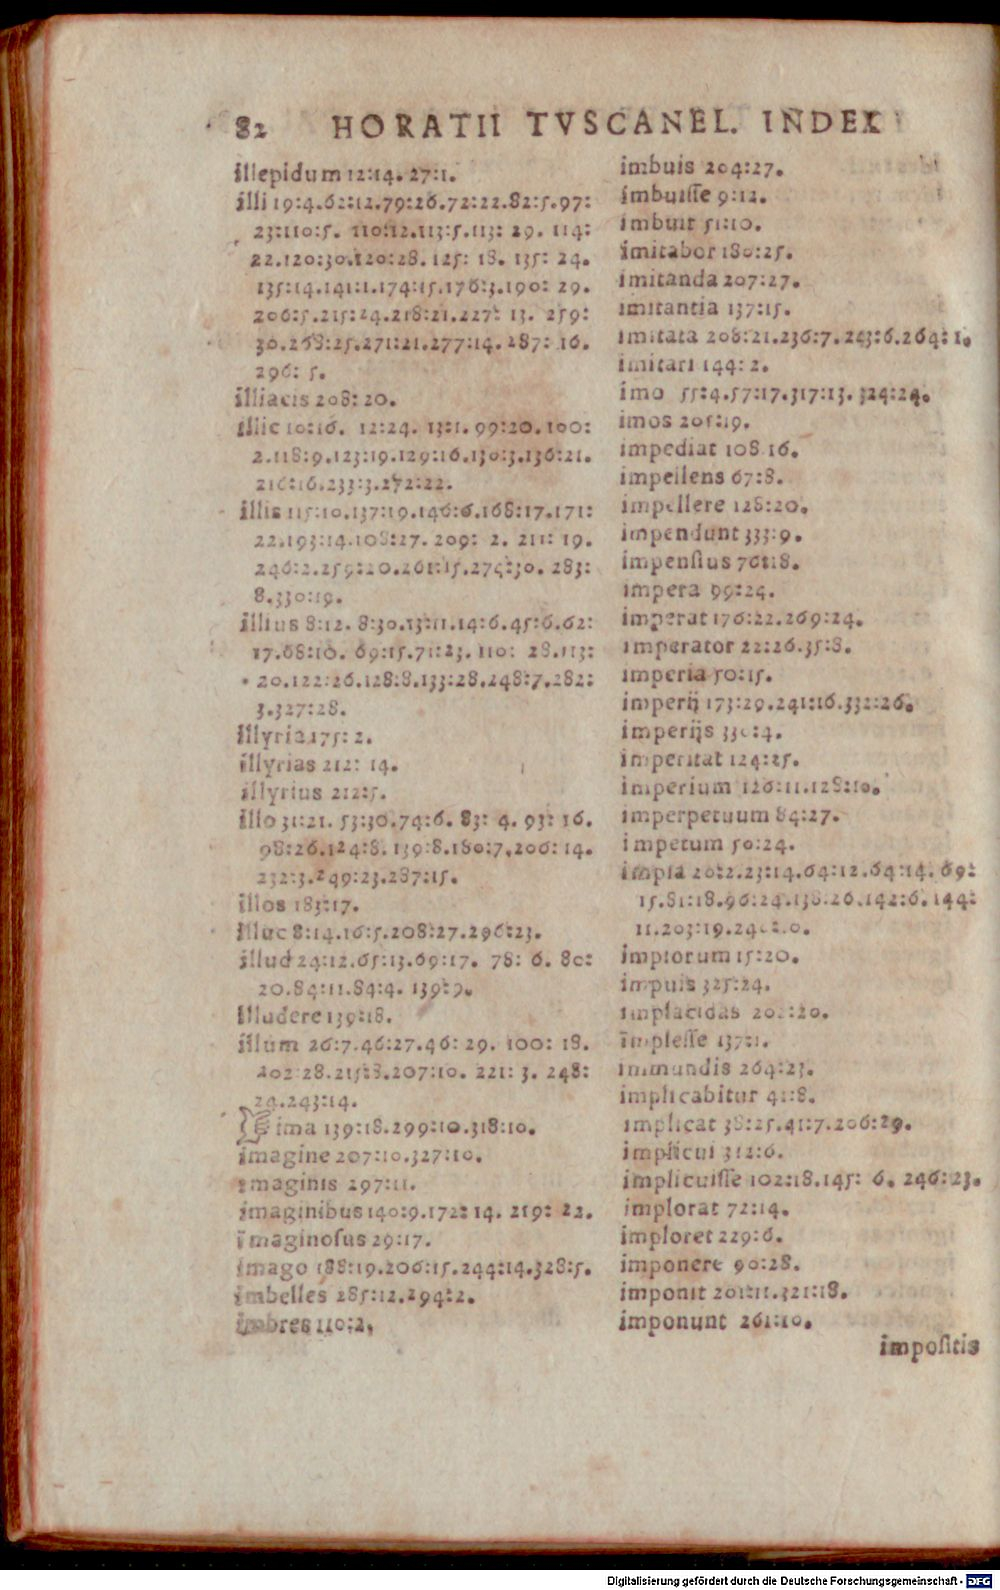 82 HORATII TVSCANEL. INDEX
illepidum 12:14. 27:1.
illi 19:4.62:12.79:26.72:22.82:5.97:
23:110:5. 110:12.113:5.113: 29. 114:
22.120:30.120:28. 125: 18. 135: 24.
135:14.141:1.174:15.176:3.190: 29.
206:5.215:24.218:21.227: 13. 259:
30.268:25.271:21.277:14. 287: 16.
296: 5.
illiacis 208: 20.
illic 10:16. 12:24. 13:1. 99:20. 100:
2.118:9.123:19.129:16.130:3.136:21.
216:16.233:3.272:22.
illis 115:10.137:19.146:6.168:17.171:
22.193:14.108:27. 209: 2. 211: 19.
246:2.259:20.261:15.275:30. 283:
8.330:19.
illius 8:12. 8:30.13:11.14:6.45:6.62:
17.68:10. 69:15.71:23. 110: 28.113:
20.122:26.128:8.133:28.248:7.282:
3.327:28.
Illyria 175: 2.
illyrias 212: 14.
illyrius 212:5.
illo 31:21. 53:30.74:6. 83: 4. 93: 16.
98:26.124:8. 139:8.180:7.206: 14.
232:3.249:23.287:15.
illos 183:17.
illuc 8:14.16:5.208:27.296:23.
illud 24:12.65:13.69:17. 78: 6. 80:
20.84:11.84:4. 139:9.
illudere 139:18.
illum 26:7.46:27.46: 29. 100: 18.
102:28.215:8.207:10. 221: 3. 248:
24.243:14.
☞ ima 139:18.299:10.318:10.
imagine 207:10.327:10.
imaginis 297:11.
imaginibus 140:9.172: 14. 219: 22.
imaginosus 29:17.
imago 188:19.206:15.244:14.328:5.
imbelles 285:12.294:2.
imbres 110:2.
imbuis 204:27.
imbuisse 9:12.
imbuit 51:10.
imitabor 180:25.
imitanda 207:27.
imitantia 137:15.
imitata 208:21.236:7.243:6.264:1.
imitari 144: 2.
imo 55:4.57:17.317:13. 324:24.
imos 205:19.
impediat 108 16.
impellens 67:8.
impellere 128:20.
impendunt 333:9.
impensius 76:18.
impera 99:24.
imperat 176:22.269:24.
imperator 22:26.35:8.
imperia 50:15.
imperij 173:29.241:16.332:26.
imperijs 330:4.
imperitat 124:25.
imperium 126:11.128:10.
imperpetuum 84:27.
impetum 50:24.
impia 20:2.23:14.64:12.64:14. 69:
15.81:18.96:24.138:26.142:6.144:
11.203:19.
impiorum 15:20.
impuis 325:24.
implacidas
implesse 137:1.
immundis 264:23.
implicabitur 41:8.
implicat 38:25.41:7.206:29.
implicui 312:6.
implicuisse 102:18.145: 6. 246:23.
implorat 72:14.
imploret 229:6.
imponere 90:28.
imponit 201:11.321:18.
imponunt 261:10.
impositis
Digitalisierung gefördert durch die Deutsche Forschungsgemeinschaft - DFG